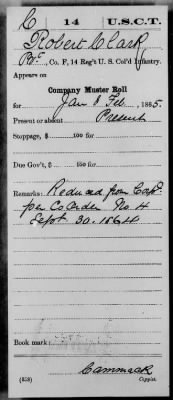 C 14 U.S.C.T.
Robert Clark
Pvt, Co. F, 14 Reg't U. S. Col'd Infantry.
Appears on
Company Muster Roll
for Jan & Feb, 1865.
Present or absent Present
Stoppage, $ 100 for
Due Gov't, $ 100 for
Remarks: Reduced from Corp
per Co Order No 4
Sept 30. 1864
Book mark:
Cammack
(858) Copyist.